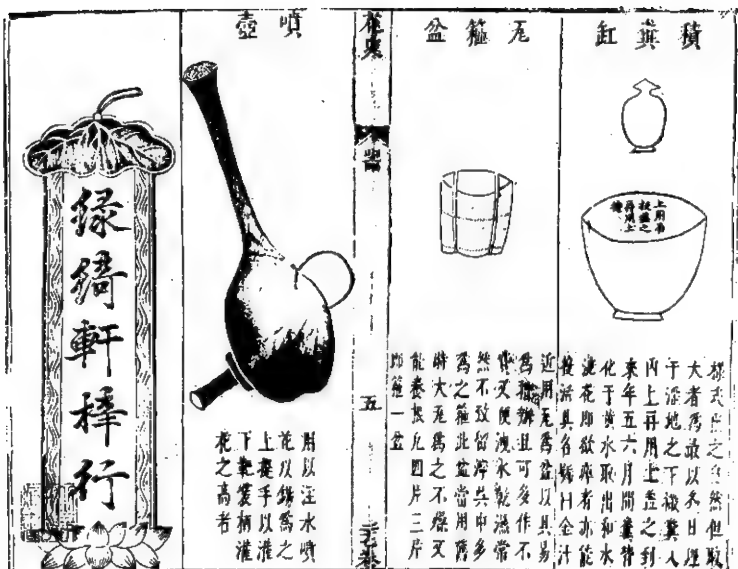 積糞缸
樣式任之自然但取
大者為最以冬日埋
于深地之下糞入
內上再用土蓋之到
來年五六月間糞皆
化于黄水取出和水
澆花即欲卒者亦能
接活其名曰金汁
瓦箍盆
近用瓦為盆以其易
辦且可多作不
費又便洩水乾濕常
然不致留滯其中多
為之箍此盆當用舊
時大瓦為之不燥又
能養根凡四片三片
即箍一盆
花史
五
噴壺
用以注水噴
花以錫為之
上提手以灌
下靶裝柄灌
花之高者
綠綺軒梓行